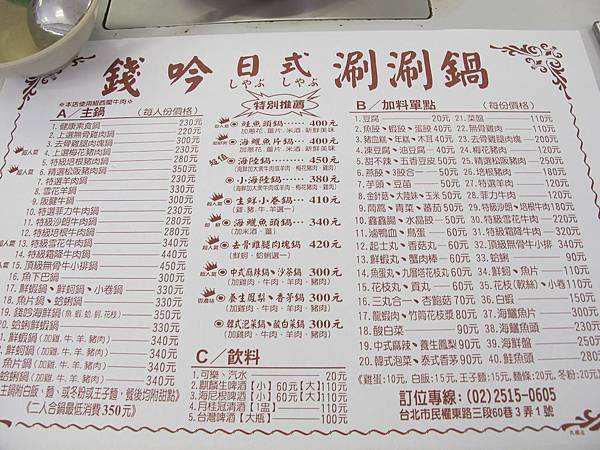 錢吟日式涮涮鍋
しゃぶ しゃぶ
*本店使用紐西蘭牛肉*
A／主鍋 (每人份價格)
1. 健康素食鍋 230元
2. 上選無骨雞肉鍋 220元
3. 去骨雞腿肉塊鍋 300元
4. 上選梅花豬肉鍋 230元
5. 特級培根豬肉鍋
6. 精選松阪豬肉鍋
7. 特選羊肉鍋
8. 雪花羊鍋 330元
9. 阪腱牛鍋 300元
10. 特選菲力牛肉鍋
11. 特級沙朗牛肉鍋
12. 特級培根牛肉鍋
13. 特級雪花牛肉鍋 340元
14. 特級霜降牛肉鍋 440元
15. 頂級無骨牛小排鍋 450元
16. 魚下巴鍋 300元
17. 鮮蝦鍋、鮮蚵鍋、小卷鍋
18. 魚片鍋、蛤蜊鍋
19. 錢吟海鮮鍋
20. 蛤蜊鮮蝦鍋 330元
鮮蝦鍋(加雞、牛、羊、豬肉) 340元
鮮蚵鍋(加雞、牛、羊、豬肉) 340元
魚片鍋(加雞、牛、羊、豬肉) 340元
蛤蜊鍋(加雞、牛、羊、豬肉) 340元
主鍋附白飯、麵、或冬粉或王子麵，餐後均附甜點》
《二人合鍋最低消費350元》
特別推薦
鮭魚頭鍋 400元
加蔥花、薑片、米酒、新鮮美味
海鱺魚片鍋 400元
海陸鍋 450元
小海陸鍋 380元
生鮮小卷鍋 410元
(雞.豬.牛.羊選一)
海鱺魚頭鍋 340元
(加米酒、薑)
去骨雞腿肉塊鍋 420元
(鮮蚵、蛤蜊選一)
中式麻辣鍋、沙茶鍋 300元
(加雞肉、牛肉、羊肉、豬肉)
養生鳳梨、香茅鍋 300元
(加雞肉、牛肉、羊肉、豬肉)
韓式泡菜鍋、酸白菜鍋 300元
(加雞肉、牛肉、羊肉、豬肉)
C／飲料
1. 可樂、汽水 20元
2. 麒麟生啤酒【小】60元【大】110元
3. 海尼根啤酒【小】60元【大】110元
4. 月桂冠清酒【1盅】 110元
5. 台灣啤酒【大瓶】 100元
B／加料單點 (每份價格)
1. 豆腐 20元
2. 魚餃、蝦餃、蛋餃 40元
3. 豬血糕、玉米、木耳 40元
4. 凍豆腐、油豆腐 40元
5. 甜不辣、五香豆皮 50元
6. 燕餃、3餃合一 60元
7. 芋頭、豆苗 50元
8. 金針菇、大陸妹、玉米 50元
9. 茼萵、青菜、番茄 50元
10. 鑫鑫腸、水晶餃 50元
11. 滷鴨血、鳥蛋 60元
12. 起士丸、香菇丸 60元
13. 鮮蝦丸、蟹肉棒 60元
14. 魚蛋丸、九層塔花枝丸 60元
15. 花枝丸、貢丸 60元
16. 三丸合一、杏鮑菇 70元
17. 龍蝦肉、竹筒花枝漿 80元
18. 酸白菜 90元
19. 中式麻辣、養生鳳梨 90元
20. 韓式泡菜、泰式香茅 90元
21. 菜盤 110元
22. 無骨雞肉 110元
23. 去骨雞腿肉塊
24. 梅花豬肉
25. 精選松阪豬肉
26. 培根豬肉
27. 特選羊肉
28. 菲力牛肉
29. 特級沙朗、培根牛肉
30. 特級雪花牛肉
31. 特級霜降牛肉
32. 頂級無骨牛小排
33. 蛤蜊
34. 鮮蚵、魚片 110元
35. 花枝(軟絲)、小卷 110元
36. 白蝦 150元
37. 海鱺魚片
38. 海鱺魚頭
39. 海鮮盤
40. 鮭魚頭 280元
《雞蛋:10元、白飯:15元、王子麵:15元、麵條:20元、冬粉:20元》
訂位專線: (02) 2515-0605
台北市民權東路三段60巷3弄1號